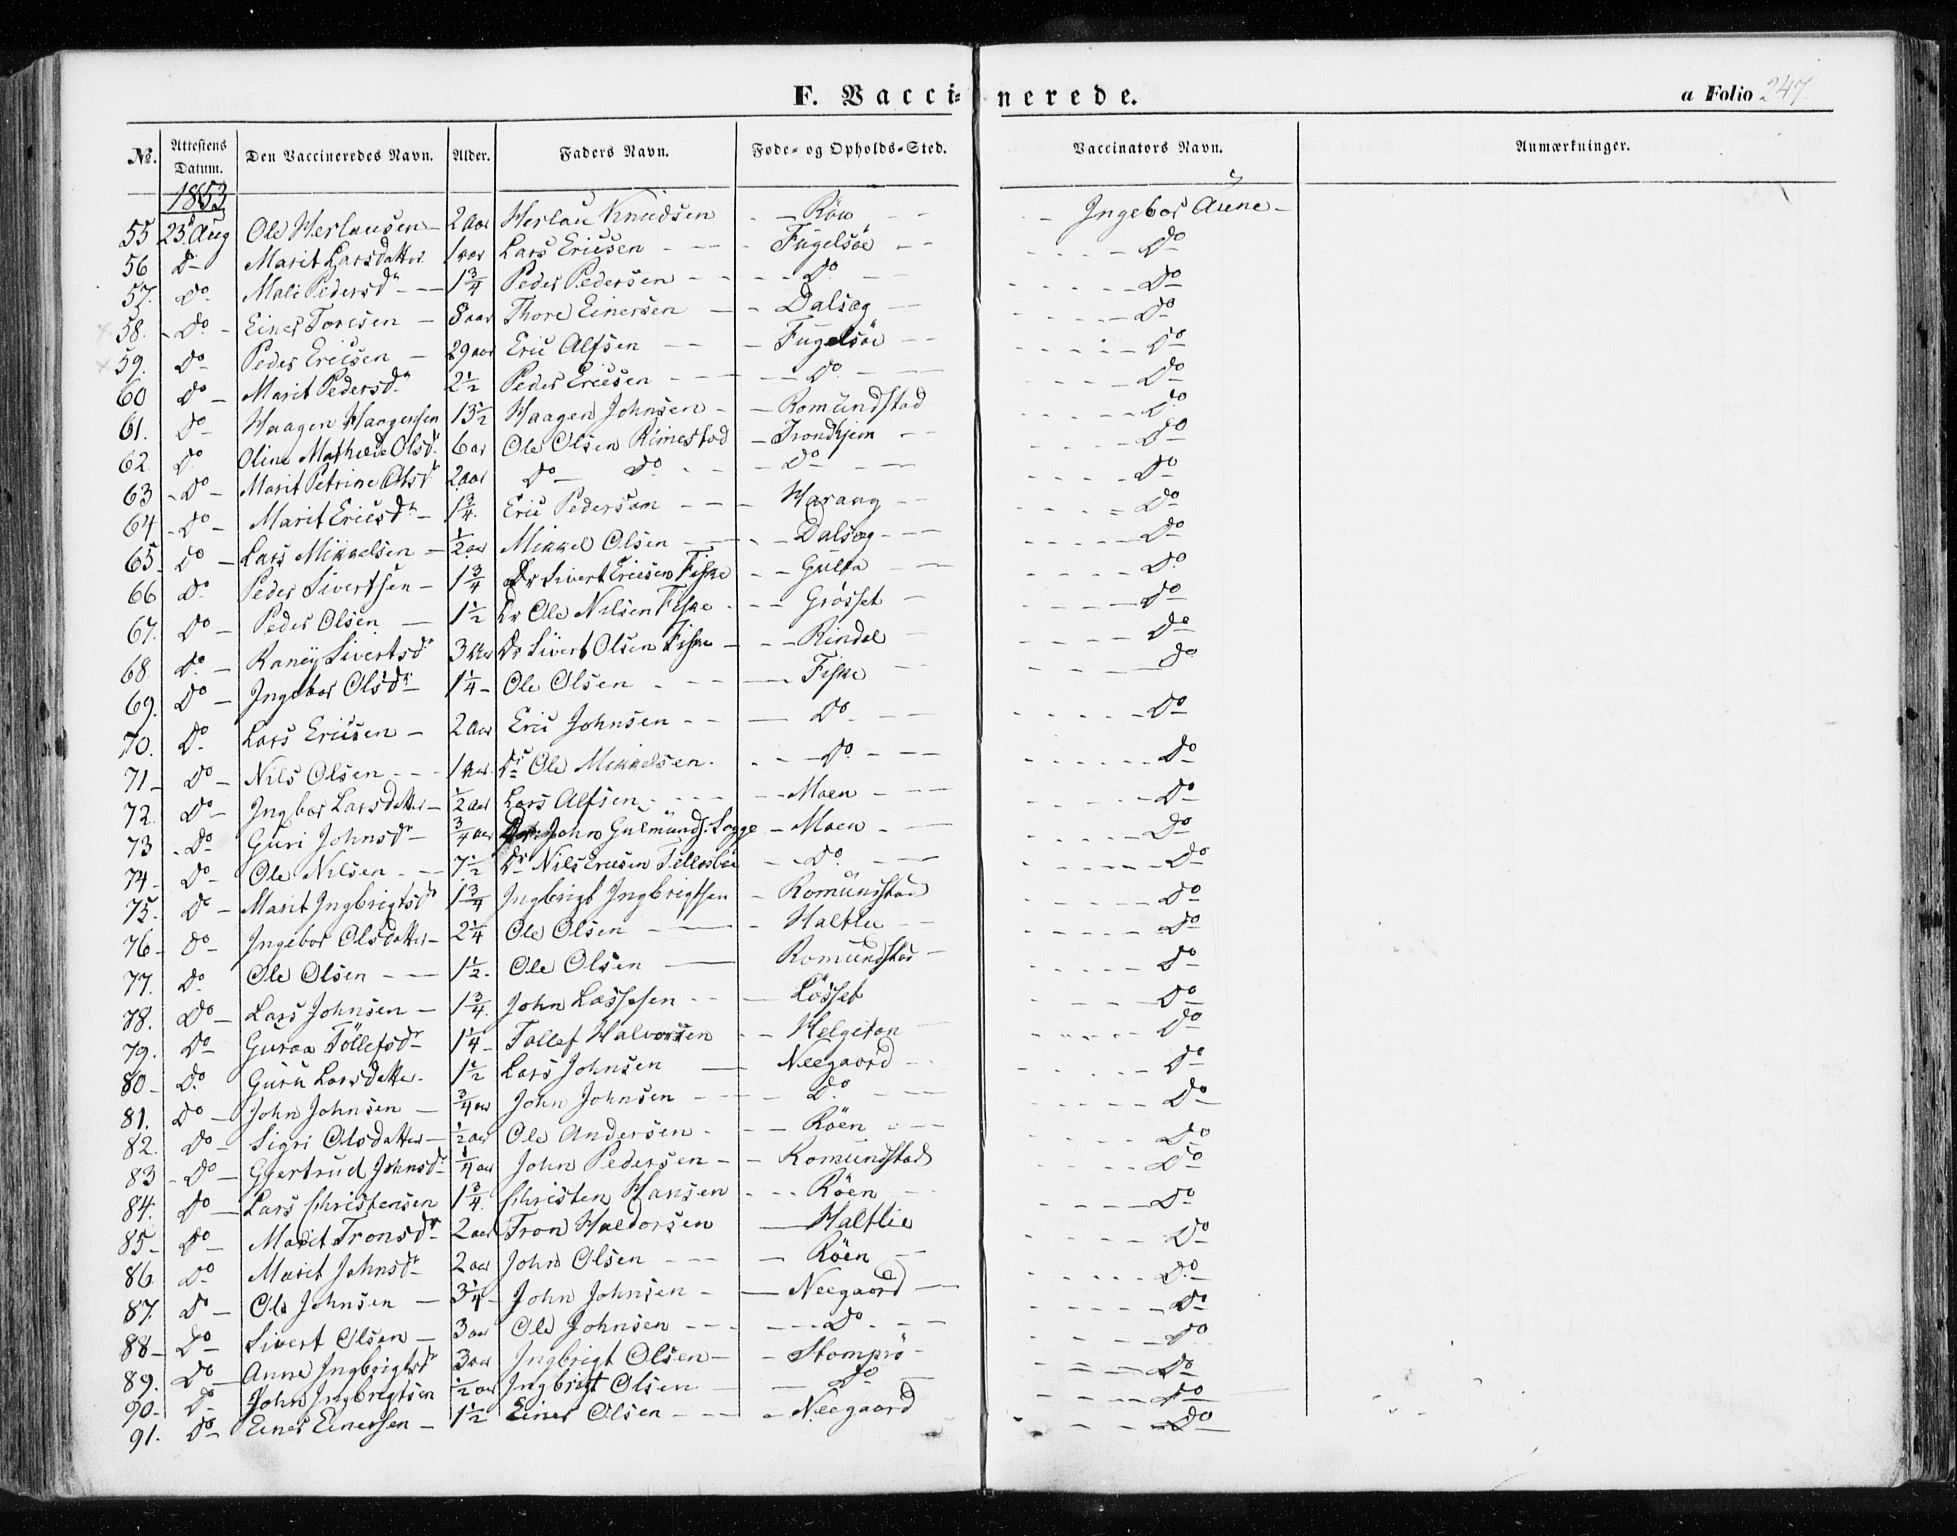 F. Vaccinerede.
a Folio 247.
№. Attestens Datum. Den Vaccineredes Navn. Alder. Faders Navn. Føde- og Opholds-Sted. Vaccinators Navn. Anmærkninger.
1853
55 23 Aug Ole Herlausen 2 Aar Herlau Knudsen Röw Ingebor Aune
56 Do Marit Larsdatter 1 aar Lars Ericsen Fugelsöe Do
57. Do Mali Pedersdr 1 3/4 Peder Pedersen Do Do
58. Do Einer Toresen 8 aar Thore Einersen Dalsæg Do
59. Do Peder Ericsen 29 aar Eric Alfsen Fugelsöe Do
60 Do Marit Pedersdr 2 1/2 Peder Ericsen Do Do
61. Do Haagen Haagensen 13 1/2 Haagen Johnsen Romundstad Do
62. Do Oline Mathilde Olsdr 6 ar Ole Olsen Rimestad Trondhjem Do
63 Do Marit Petrine Olsdr 2 aar Do Do Do Do
64 Do Marit Ericsdr 1 3/4 Eric Pedersen Harang Do
65 Do Lars Mikkelsen 1/2 aar Mikkel Olsen Dalsæg Do
66 Do Peder Sivertsen 1 3/4 Dr Sivert Ericsen Fiske Gulla Do
67. Do Peder Olsen 1 1/2 Dr Ole Nilsen Fiske Grösset Do
68 Do Raney Sivertsdr 3 Aar Dr Sivert Olsen Fiske Rindal Do
69. Do Ingebor Olsdr 1 1/4 Ole Olsen Fiske Do
70. Do Lars Ericsen 2 Aar Eric Johnsen Do Do
71 Do Nils Olsen 1 Aar Dr Ole Mikkelsen Do Do
72. Do Ingbor Larsdatter 1/2 aar Lars Alfsen Moen Do
73 Do Guri Johnsdr 3/4 aar John Gulmunds. Sogge Moen Do
74 Do Ole Nilsen 7 1/2 Dr Nils Ericsen Do Do
75. Do Marit Ingbrigtsdr 1 3/4 Ingbrigt Ingbrigtsen Romundstad Do
76 Do Ingebor Olsdatter 2 1/4 Ole Olsen Haltlie Do
77. Do Ole Olsen 1 1/2 Ole Olsen Romundstad Do
78. Do Lars Johnsen 1 3/4 John Lassesen Lösset Do
79. Do Guroa Töllefsdr 1 1/4 Tollef Halvorsen Helgeton Do
80 Do Guru Larsdatter 1 1/2 Lars Johnsen Neegaard Do
81. Do John Johnsen 3/4 aar John Johnsen Do Do
82. Do Sigri Olsdatter 1/2 aar Ole Andersen Röen Do
83 Do Gjertrud Johnsdr 1/4 aar John Pedersen Romundstad Do
84. Do Lars Christensen 1 3/4 Christen Hansen Röen Do
85 Do Marit Tronsdr 2 aar Tron Haldorsen Haltlie Do
86 Do Marit Johnsdr 2 aar John Olsen Röen Do
87. Do Ole Johnsen 3 1/4 John Johnsen Neegaard Do
88 Do Sivert Olsen 3 aar Ole Johnsen Do Do
89. Do Anne Ingbrigtsdr 3 aar Ingbrigt Olsen Stomprö Do
90 Do John Ingbrigtsen 1/2 aar Ingbrigt Olsen Do Do
91. Do Einer Einersen 1 1/2 Einer Olsen Neegaard Do